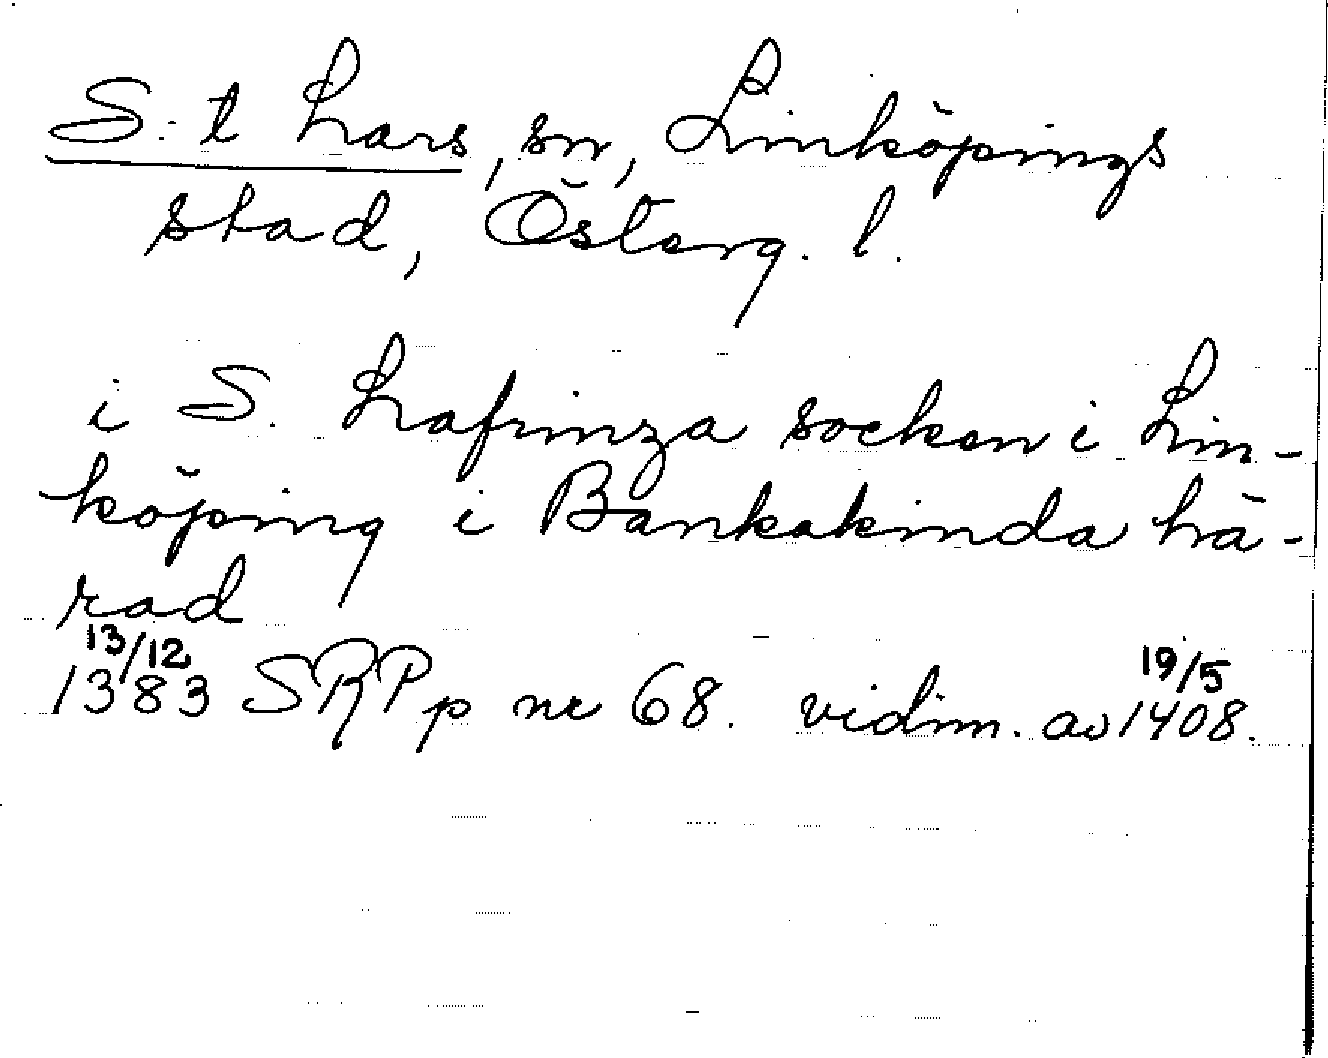 S:t Lars, sn, Linköpings
stad, Österg. l.
i S. Lafrinza socken i Lin-
köping i Bankakinda hä-
rad
13/12 19/5
1383 SRPp nr 68. vidim. av 1408.